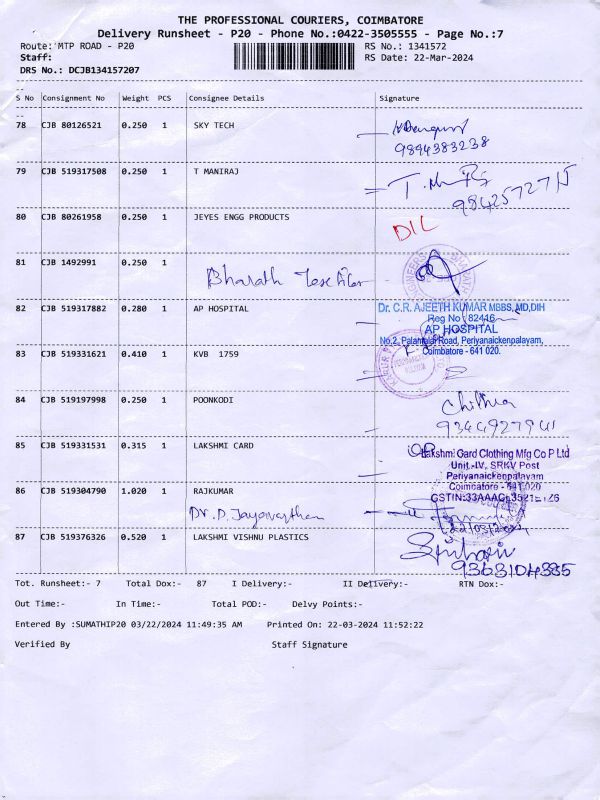 THE PROFESSIONAL COURIERS, COIMBATORE
Delivery Runsheet - P20 - Phone No.:0422-3505555 - Page No.:7
Route: MTP ROAD - P20 RS No.: 1341572
Staff: RS Date: 22-Mar-2024
DRS No.: DCJB134157207
S No Consignment No Weight PCS Consignee Details Signature
78 CJB 80126521 0.250 1 SKY TECH
9894383238
79 CJB 519317508 0.250 1 T MANIRAJ
80 CJB 80261958 0.250 1 JEYES ENGG PRODUCTS
81 CJB 1492991 0.250 1
Bharath
82 CJB 519317882 0.280 1 AP HOSPITAL
Dr. C.R. AJEETH KUMAR MBBS, MD, DIH
Reg No : 82416
AP HOSPITAL
No.2, Palamalai Road, Periyanaickenpalayam,
Coimbatore - 641 020.
83 CJB 519331621 0.410 1 KVB 1759
84 CJB 519197998 0.250 1 POONKODI
Chithra
85 CJB 519331531 0.315 1 LAKSHMI CARD
Lakshmi Card Clothing Mfg Co P Ltd
Unit-IV, SRKV Post
Periyanaickenpalayam
Coimbatore - 641 020
86 CJB 519304790 1.020 1 RAJKUMAR
87 CJB 519376326 0.520 1 LAKSHMI VISHNU PLASTICS
9363104385
Tot. Runsheet:- 7 Total Dox:- 87 I Delivery:- II Delivery:- RTN Dox:-
Out Time:- In Time:- Total POD:- Delvy Points:-
Entered By :SUMATHIP20 03/22/2024 11:49:35 AM Printed On: 22-03-2024 11:52:22
Verified By Staff Signature